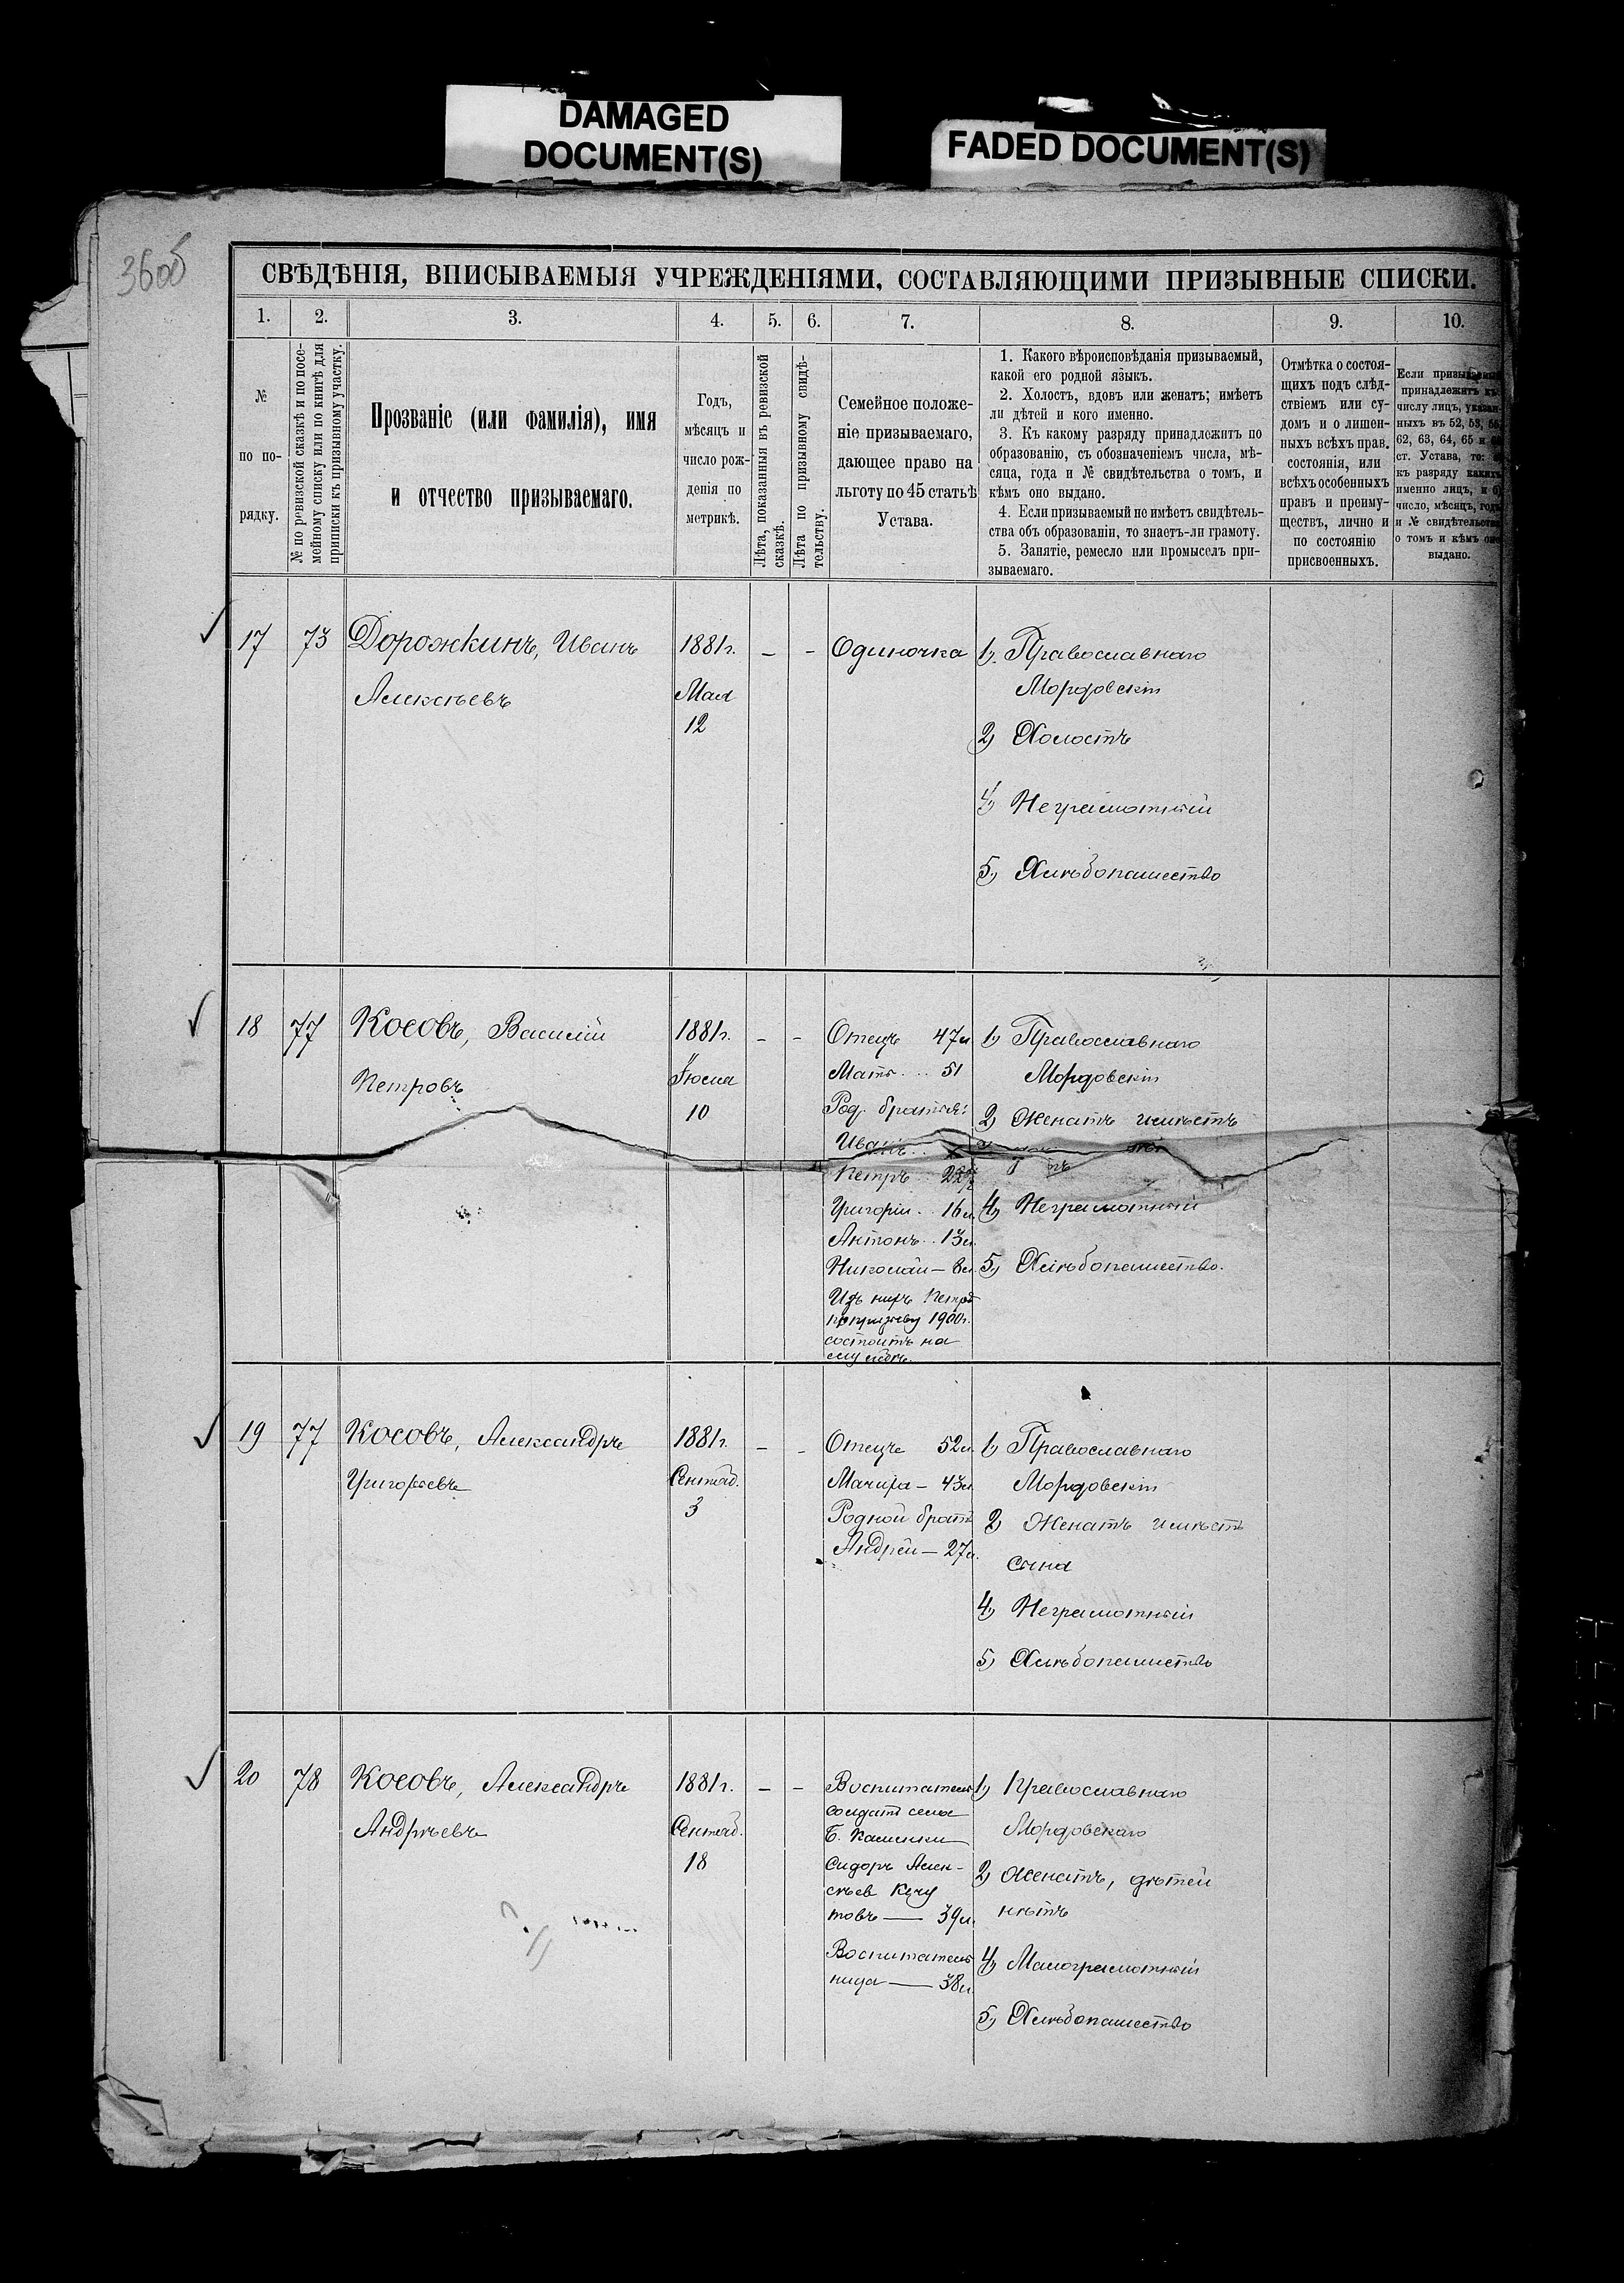 DAMAGED
DOCUMENT(S)
FADED DOCUMENT(S)
36об
СВѢДѢНІЯ, ВПИСЫВАЕМЫЯ УЧРЕЖДЕНІЯМИ, СОСТАВЛЯЮЩИМИ ПРИЗЫВНЫЕ СПИСКИ.
1. 2. 3. 4. 5. 6. 7. 8. 9. 10.
№
по по-
рядку.
№ по ревизской сказкѣ и по посе-
мейному списку или по книгѣ для
приписки къ призывному участку.
Прозваніе (или фамилія), имя
и отчество призываемаго.
Годъ,
мѣсяцъ и
число рож-
денія по
метрикѣ.
Лѣта, показанныя въ ревизской
сказкѣ.
Лѣта по призывному свидѣ-
тельству.
Семейное положе-
ніе призываемаго,
дающее право на
льготу по 45 статьѣ
Устава.
1. Какого вѣроисповѣданія призываемый,
какой его родной языкъ.
2. Холостъ, вдовъ или женатъ; имѣетъ
ли дѣтей и кого именно.
3. Къ какому разряду принадлежитъ по
образованію, съ обозначеніемъ числа, мѣ-
сяца, года и № свидѣтельства о томъ, и
кѣмъ оно выдано.
4. Если призываемый не имѣетъ свидѣтель-
ства объ образованіи, то знаетъ-ли грамоту.
5. Занятіе, ремесло или промыселъ при-
зываемаго.
Отмѣтка о состоя-
щихъ подъ слѣд-
ствіемъ или су-
домъ и о лишен-
ныхъ всѣхъ прав.
состоянія, или
всѣхъ особенныхъ
правъ и преиму-
ществъ, лично и
по состоянію
присвоенныхъ.
Если призываемый
принадлежитъ къ
числу лицъ, указан-
ныхъ въ 52, 53, 56,
62, 63, 64, 65 и
ст. Устава, то:
къ разряду какихъ
именно лицъ, и б)
число, мѣсяцъ, годъ
и № свидѣтельства
о томъ и кѣмъ оно
выдано.
17 73 Дорожкинъ, Иванъ
Алексѣевъ
1881г.
Мая
12
— —
Одиночка
1) Православнаго
Мордовскій
2) Холостъ
4) Неграмотный
5) Хлѣбопашество
18 77 Косовъ, Василій
Петровъ
1881г.
Іюля
10
— —
Отецъ 47л
Мать... 51
Род. братья:
Иванъ..
Петръ 22
Григорій. 16л.
Антонъ.. 13л.
Николай — 8л.
Изъ нихъ Петръ
по призыву 1900г.
состоитъ на
службѣ.
1) Православнаго
Мордовскій
2) Женатъ имѣетъ
4) Неграмотный
5) Хлѣбопашество.
19 77 Косовъ, Александръ
Григорьевъ
1881г.
Сентяб.
3
— —
Отецъ 52л.
Мачиха — 43л.
Родной братъ
Андрей — 27л.
1) Православнаго
Мордовскій
2) Женатъ имѣетъ
сына
4) Неграмотный
5) Хлѣбопашество
20 78 Косовъ, Александръ
Андреевъ
1881г.
Сентяб.
18
— —
Воспитатель
солдатъ села
Б. Каменки
Сидоръ Алек-
сѣев Кечу
товъ — 39л.
Воспитатель
ница — 38л.
1) Православнаго
Мордовскаго
2) Женатъ, дѣтей
нѣтъ
4) Малограмотный
5) Хлѣбопашество